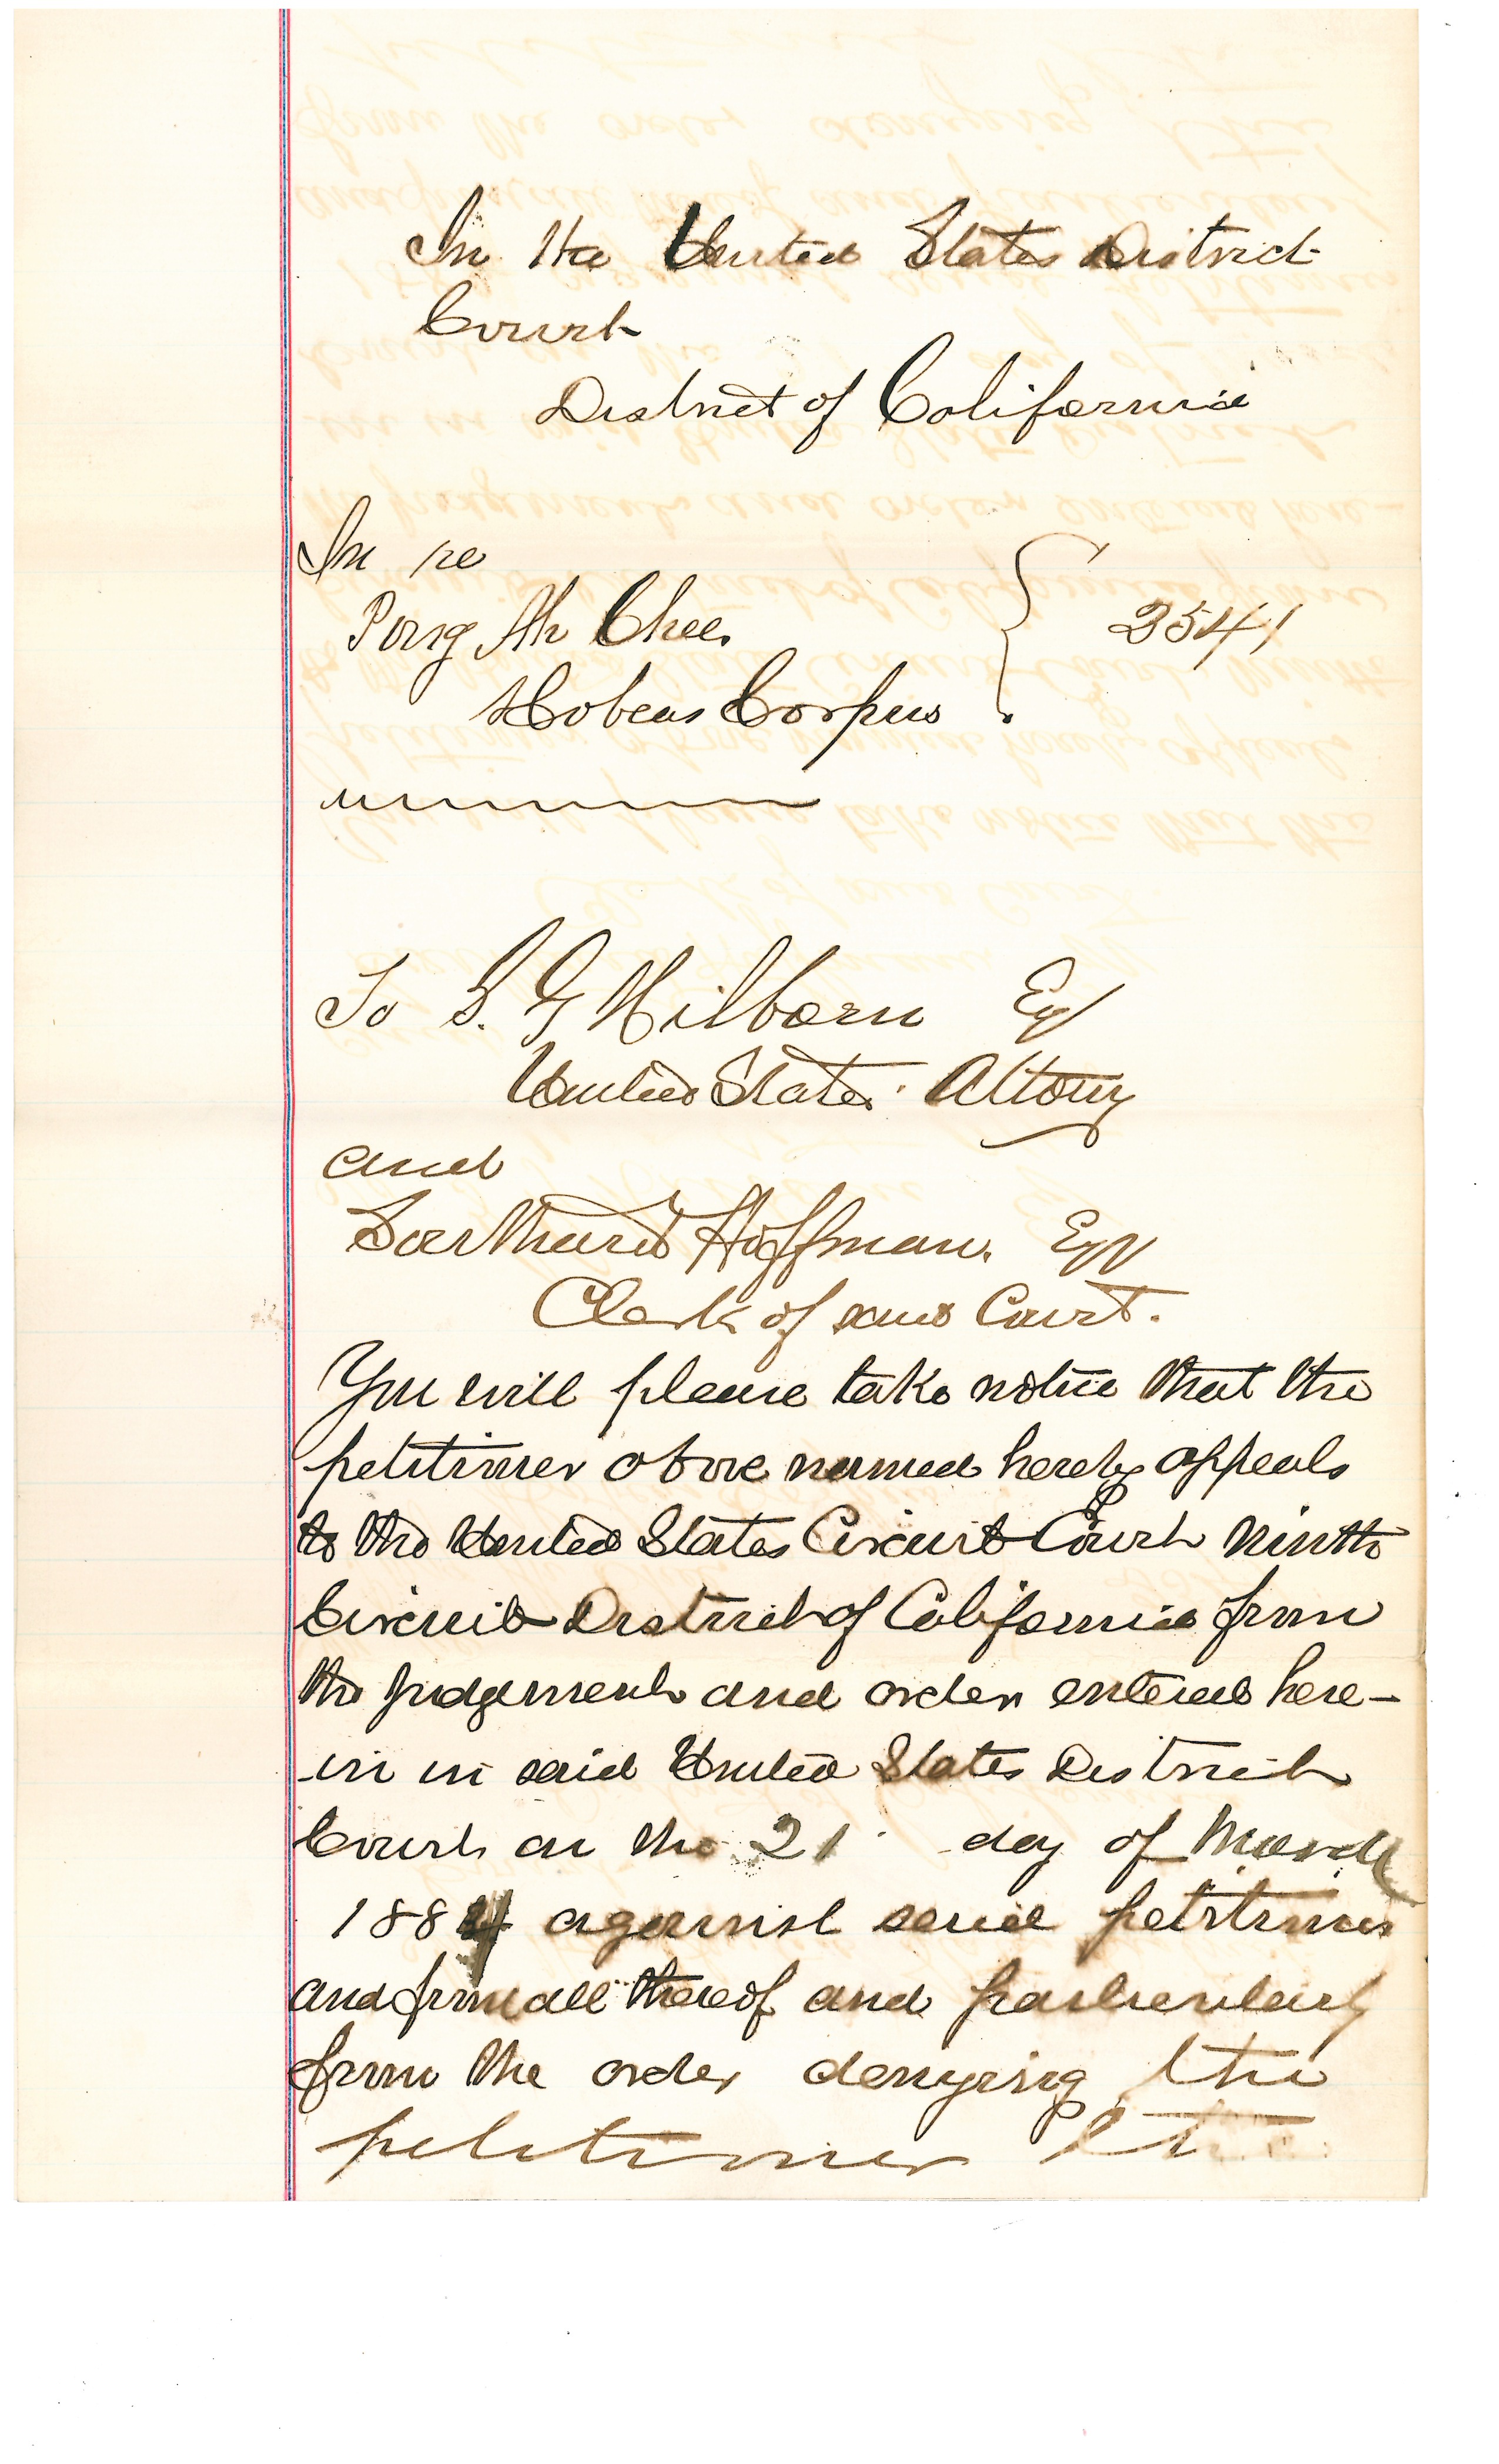 In the United States District
Court
District of California
In re
Pong Ah Chee
Habeas Corpus
3541
To S. G Hilborn Esq
United States Attorny
and
Southard Hoffman. Esq
Clerk of said Court.
You will please take notice that the
petitioner above named hereby appeals
to the United States Circuit Court Ninth
Circuit District of California from
the judgement and order entered here-
in in said United States District
Court on the 21 day of March
1884 against said petitioner
and from all thereof and particularly
from the order denying the
petitioner